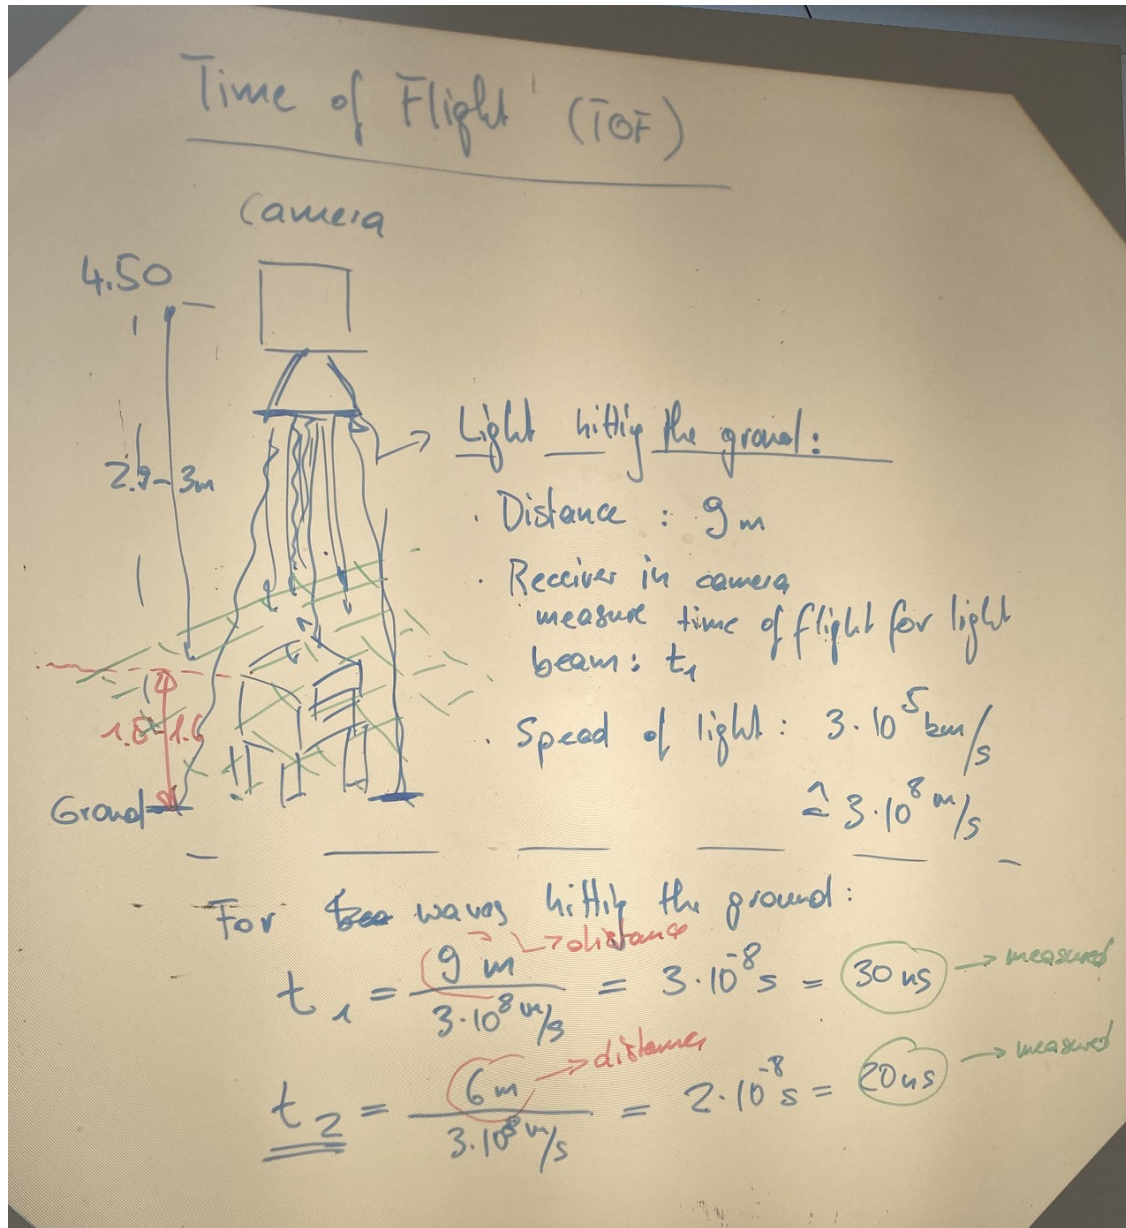 Time of Flight (TOF)
Camera
4.50
2.9-3m
Light hittig the ground:
· Distance : 9m
· Receiver in camera
measure time of flight for light
beam: t1
· Speed of light: 3·10^5 km/s
≙ 3·10^8 m/s
Ground
For waves hittig the ground:
t1 = 9 m / 3·10^8 m/s = 3·10^-8 s = 30 ns → measured
→ distance
t2 = 6 m / 3·10^8 m/s = 2·10^-8 s = 20 ns → measured
→ distance